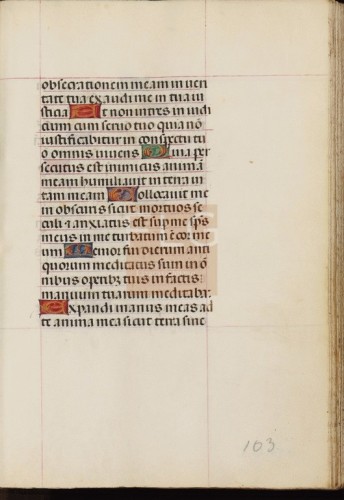 obsecrationem meam in veri
tate tua exaudi me in tua iu
sticia Et non intres in iudi
cium cum seruo tuo quia nō
iustificabitur in conspectu tu
o omnis viuens Quia per
secutus est inimicus animā
meam humiliauit in terra vi
tam meam Collocauit me
in obscuris sicut mortuos se
culi et anxiatus est sup me sps
meus in me turbatum ē cor me
um Memor fui dierum anti
quorum meditatus sum in ō
nibus operibꝫ tuis in factis
manuum tuarum meditabar
Expandi manus meas ad
te anima mea sicut terra sine
103